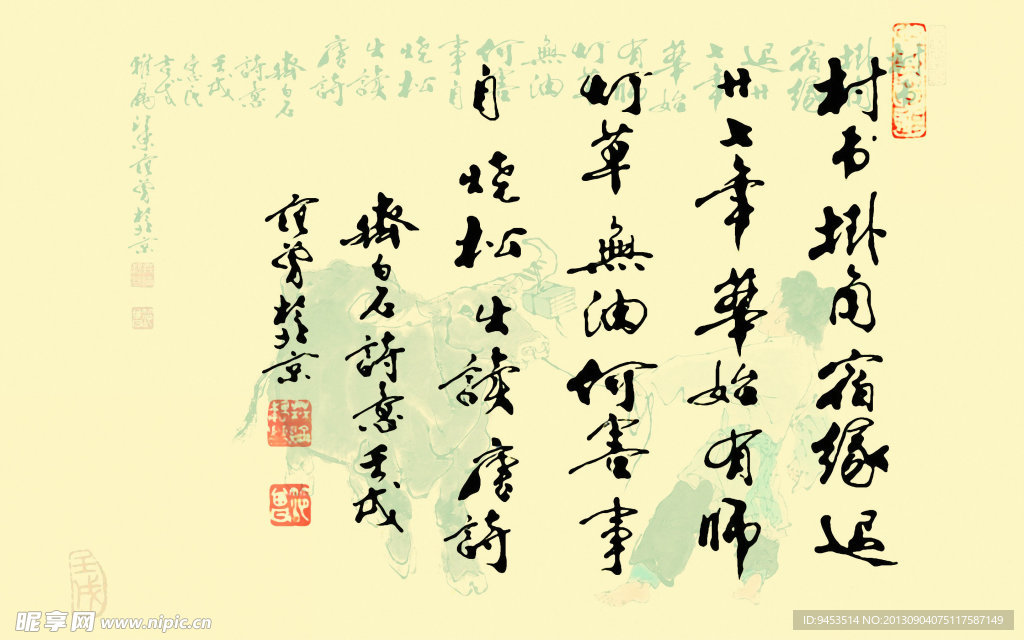 村书掛角宿缘迟
廿七年華始有师
灯草無油何害事
自烧松火读唐詩
齊白石詩意壬戌
范曾於京
范曾
壬戌
昵享网 www.nipic.cn
ID:9453514 NO:20130904075117587149